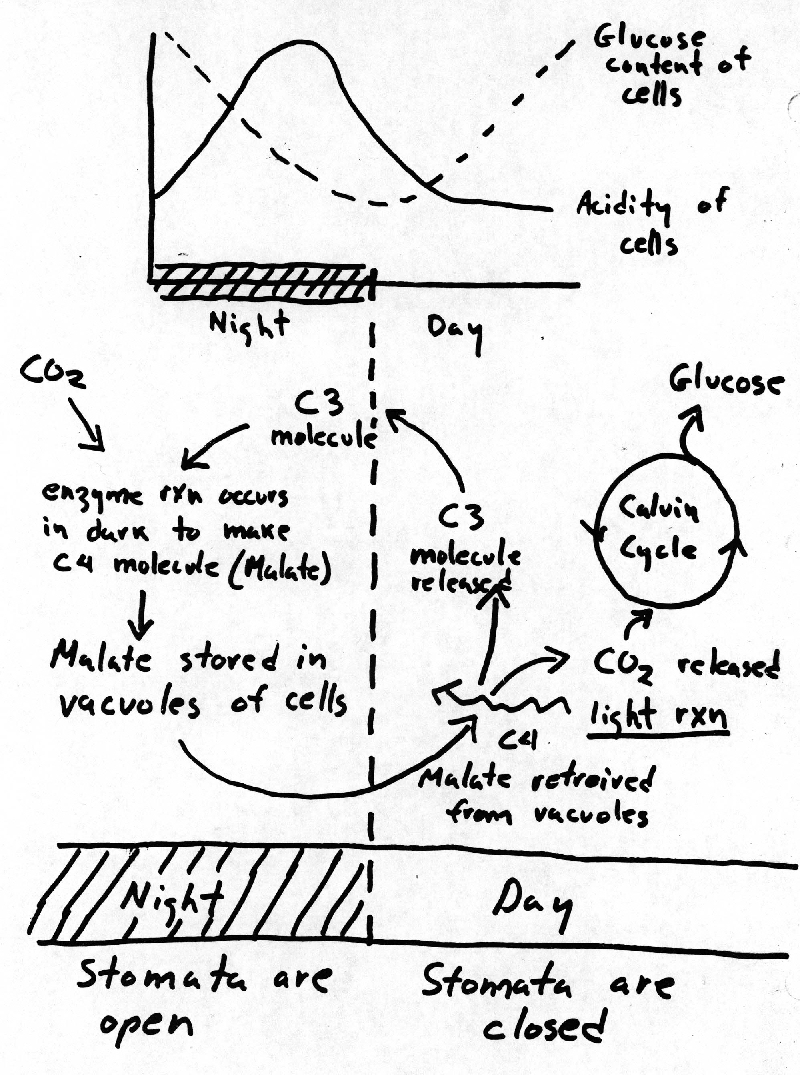 Glucose
content of
cells
Acidity of
cells
Night
Day
CO2
C3
molecule
enzyme rxn occurs
in dark to make
C4 molecule (Malate)
Malate stored in
vacuoles of cells
C3
molecule
released
Glucose
Calvin
Cycle
CO2 released
light rxn
C4
Malate retroived
from vacuoles
Night
Day
Stomata are
open
Stomata are
closed